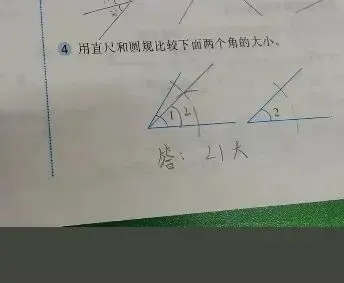 4 用直尺和圆规比较下面两个角的大小。
1 2 2
答：∠1大